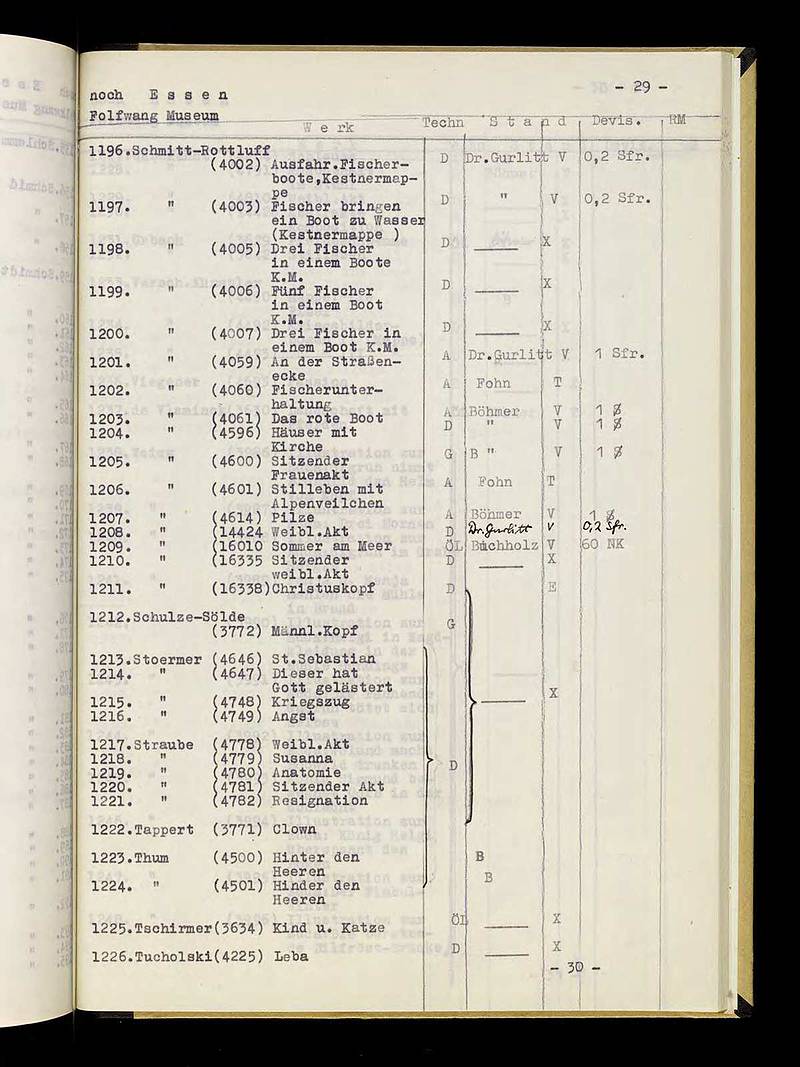 - 29 -
noch E s s e n
Folfwang Museum
W e rk Techn S t a n d Devis. RM
1196.Schmitt-Rottluff
(4002) Ausfahr.Fischer- D Dr.Gurlitt V 0,2 Sfr.
boote,Kestnermap-
pe
1197. " (4003) Fischer bringen D " V 0,2 Sfr.
ein Boot zu Wasser
(Kestnermappe )
1198. " (4005) Drei Fischer D X
in einem Boote
K.M.
1199. " (4006) Fünf Fischer D X
in einem Boot
K.M.
1200. " (4007) Drei Fischer in D X
einem Boot K.M.
1201. " (4059) An der Straßen- A Dr.Gurlitt V 1 Sfr.
ecke
1202. " (4060) Fischerunter- A Fohn T
haltung
1203. " (4061) Das rote Boot A Böhmer V 1 $
1204. " (4596) Häuser mit D " V 1 $
Kirche
1205. " (4600) Sitzender G B " V 1 $
Frauenakt
1206. " (4601) Stilleben mit A Fohn T
Alpenveilchen
1207. " (4614) Pilze A Böhmer V 1 $
1208. " (14424 Weibl.Akt D Dr.Gurlitt V 0,2 Sfr.
1209. " (16010 Sommer am Meer ÖL Buchholz V 60 NK
1210. " (16335 Sitzender D X
weibl.Akt
1211. " (16338)Christuskopf D E
1212.Schulze-Sölde
(3772) Männl.Kopf G
1213.Stoermer (4646) St.Sebastian
1214. " (4647) Dieser hat
Gott gelästert X
1215. " (4748) Kriegszug
1216. " (4749) Angst
1217.Straube (4778) Weibl.Akt
1218. " (4779) Susanna D
1219. " (4780) Anatomie
1220. " (4781) Sitzender Akt
1221. " (4782) Resignation
1222.Tappert (3771) Clown
1223.Thum (4500) Hinter den B
Heeren
1224. " (4501) Hinder den B
Heeren
1225.Tschirmer(3634) Kind u. Katze ÖL X
1226.Tucholski(4225) Leba D X
- 30 -